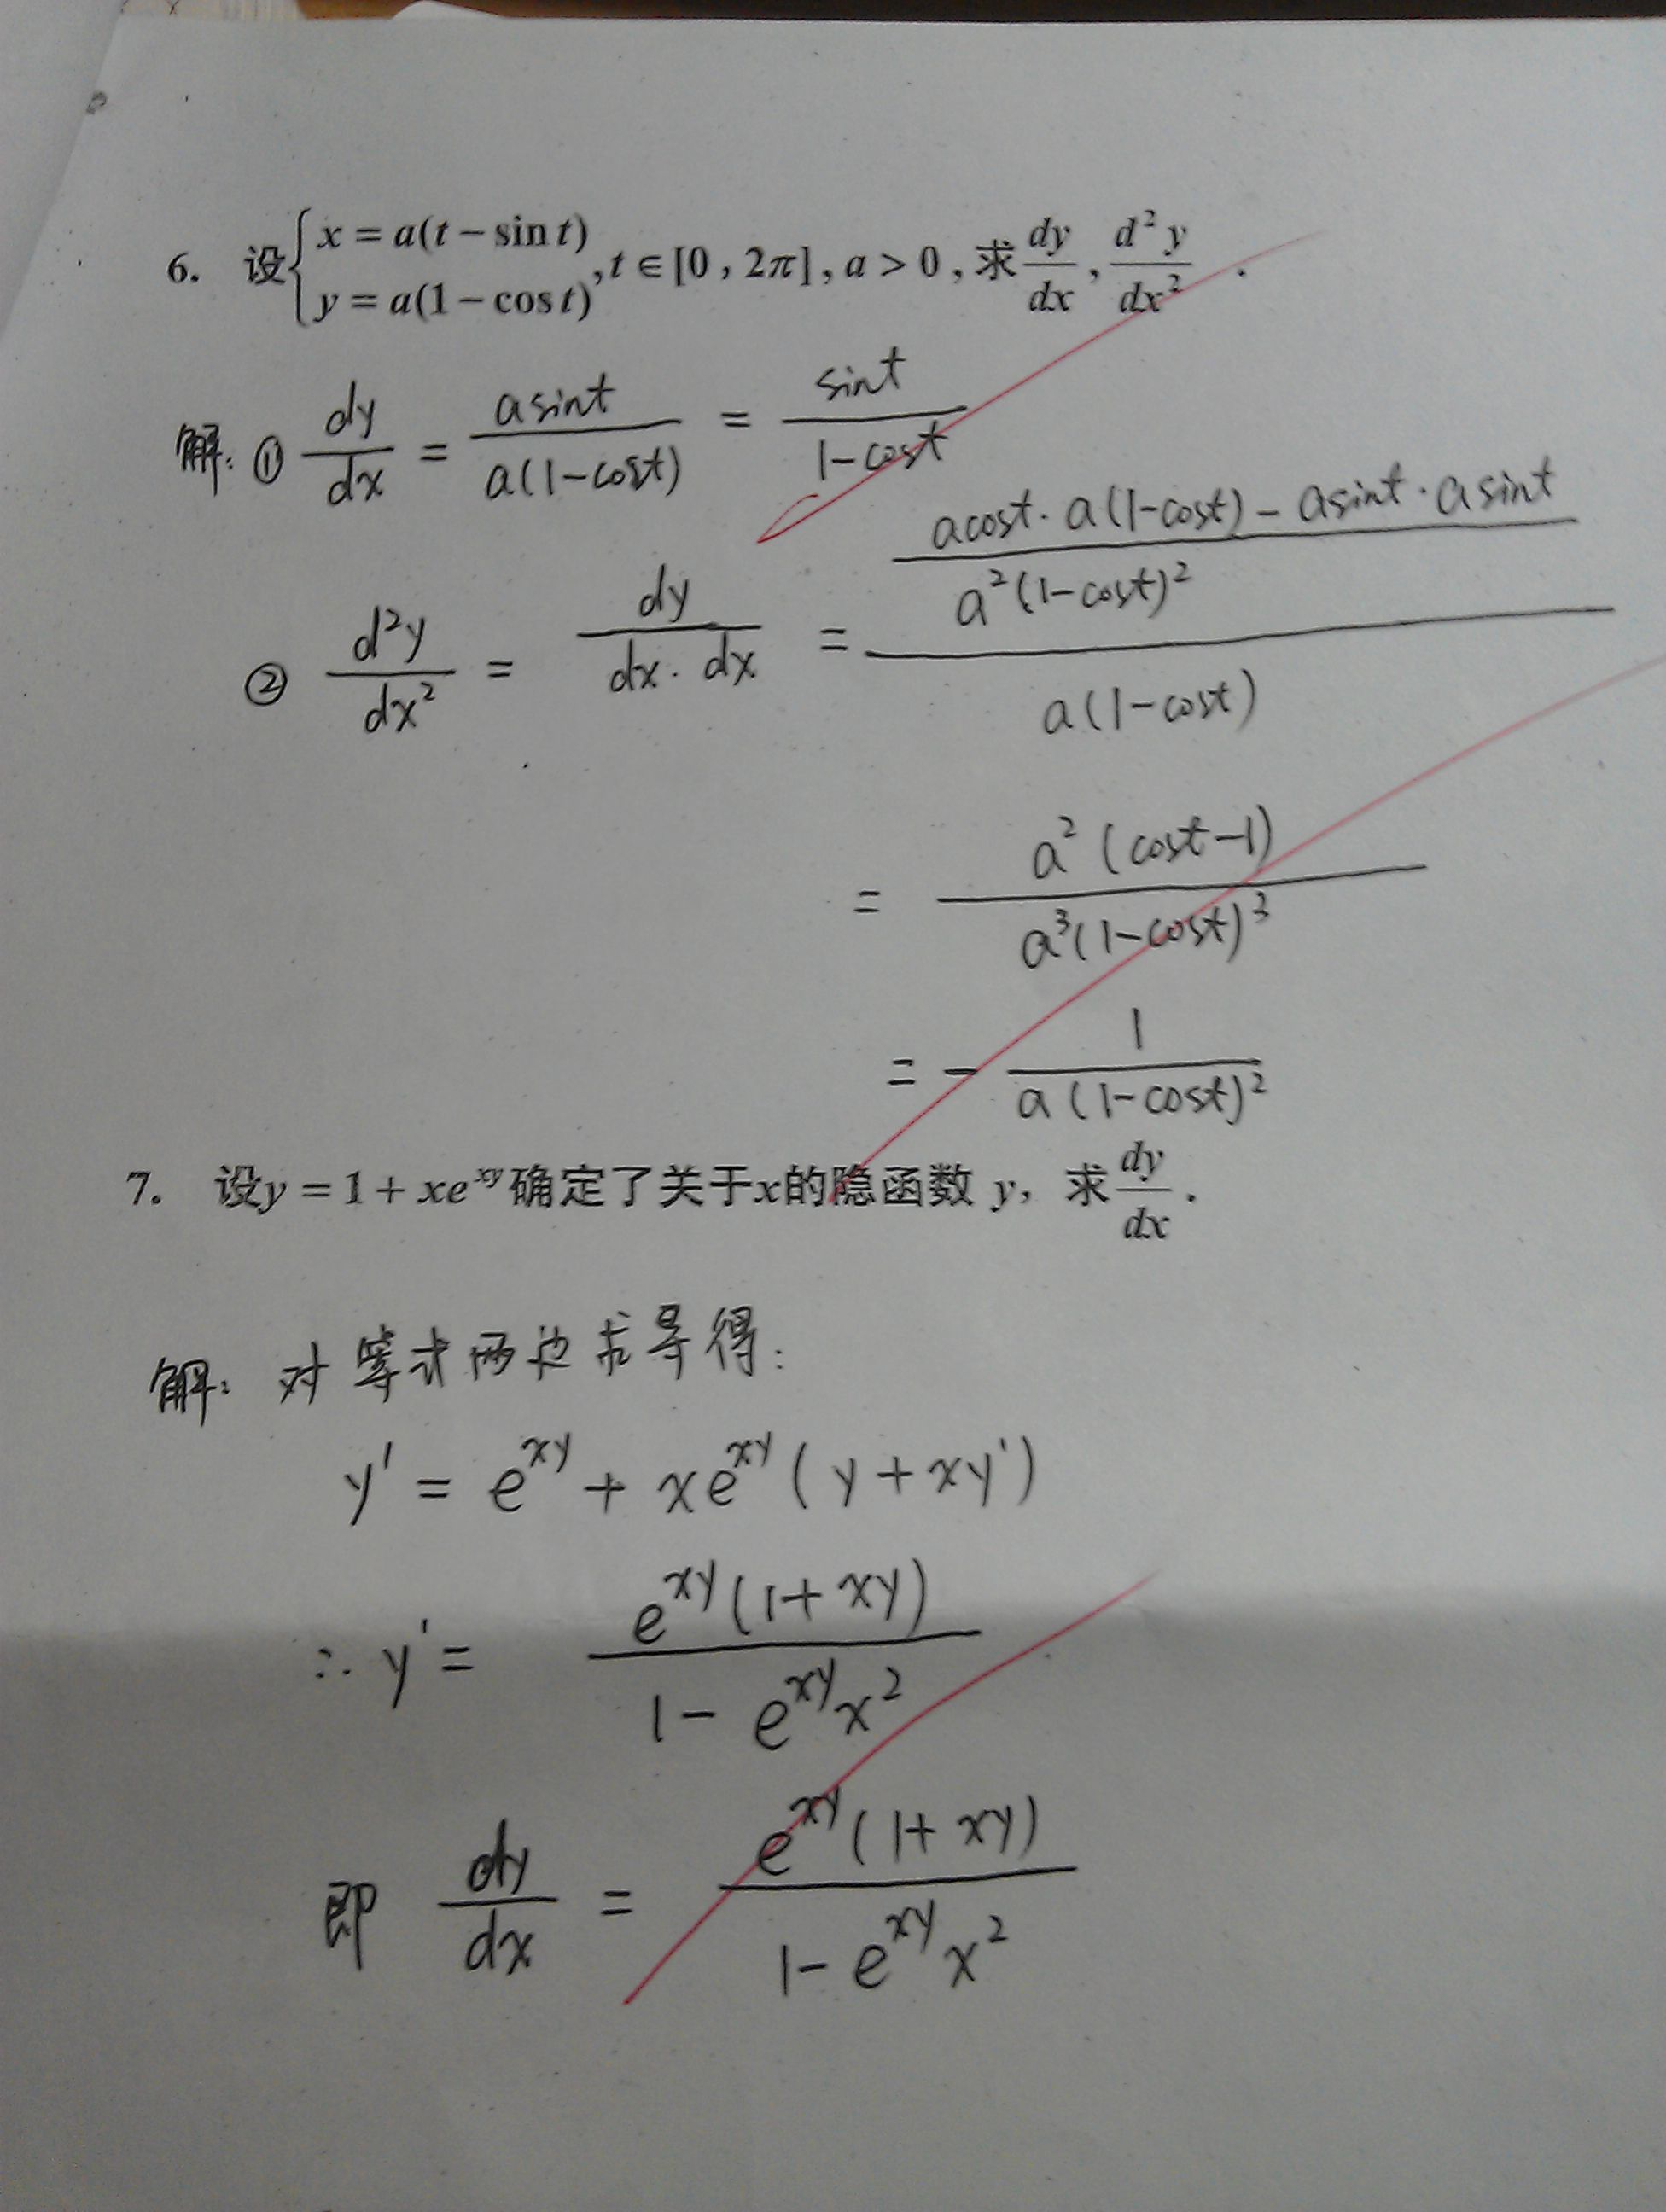 6. 设{x = a(t − sin t), y = a(1 − cos t), t ∈ [0, 2π], a > 0, 求 dy/dx, d²y/dx² .
解: ① dy/dx = asint/a(1-cost) = sint/1-cost
② d²y/dx² = dy/dx·dx = (acost·a(1-cost) - asint·asint / a²(1-cost)²) / a(1-cost)
= a²(cost-1)/a³(1-cost)³
= - 1/a(1-cost)²
7. 设y = 1 + xe^{xy}确定了关于x的隐函数 y, 求 dy/dx .
解: 对等式两边求导得:
y' = e^{xy} + xe^{xy}(y + xy')
∴ y' = e^{xy}(1+xy)/1 - e^{xy}x²
即 dy/dx = e^{xy}(1+xy)/1 - e^{xy}x²